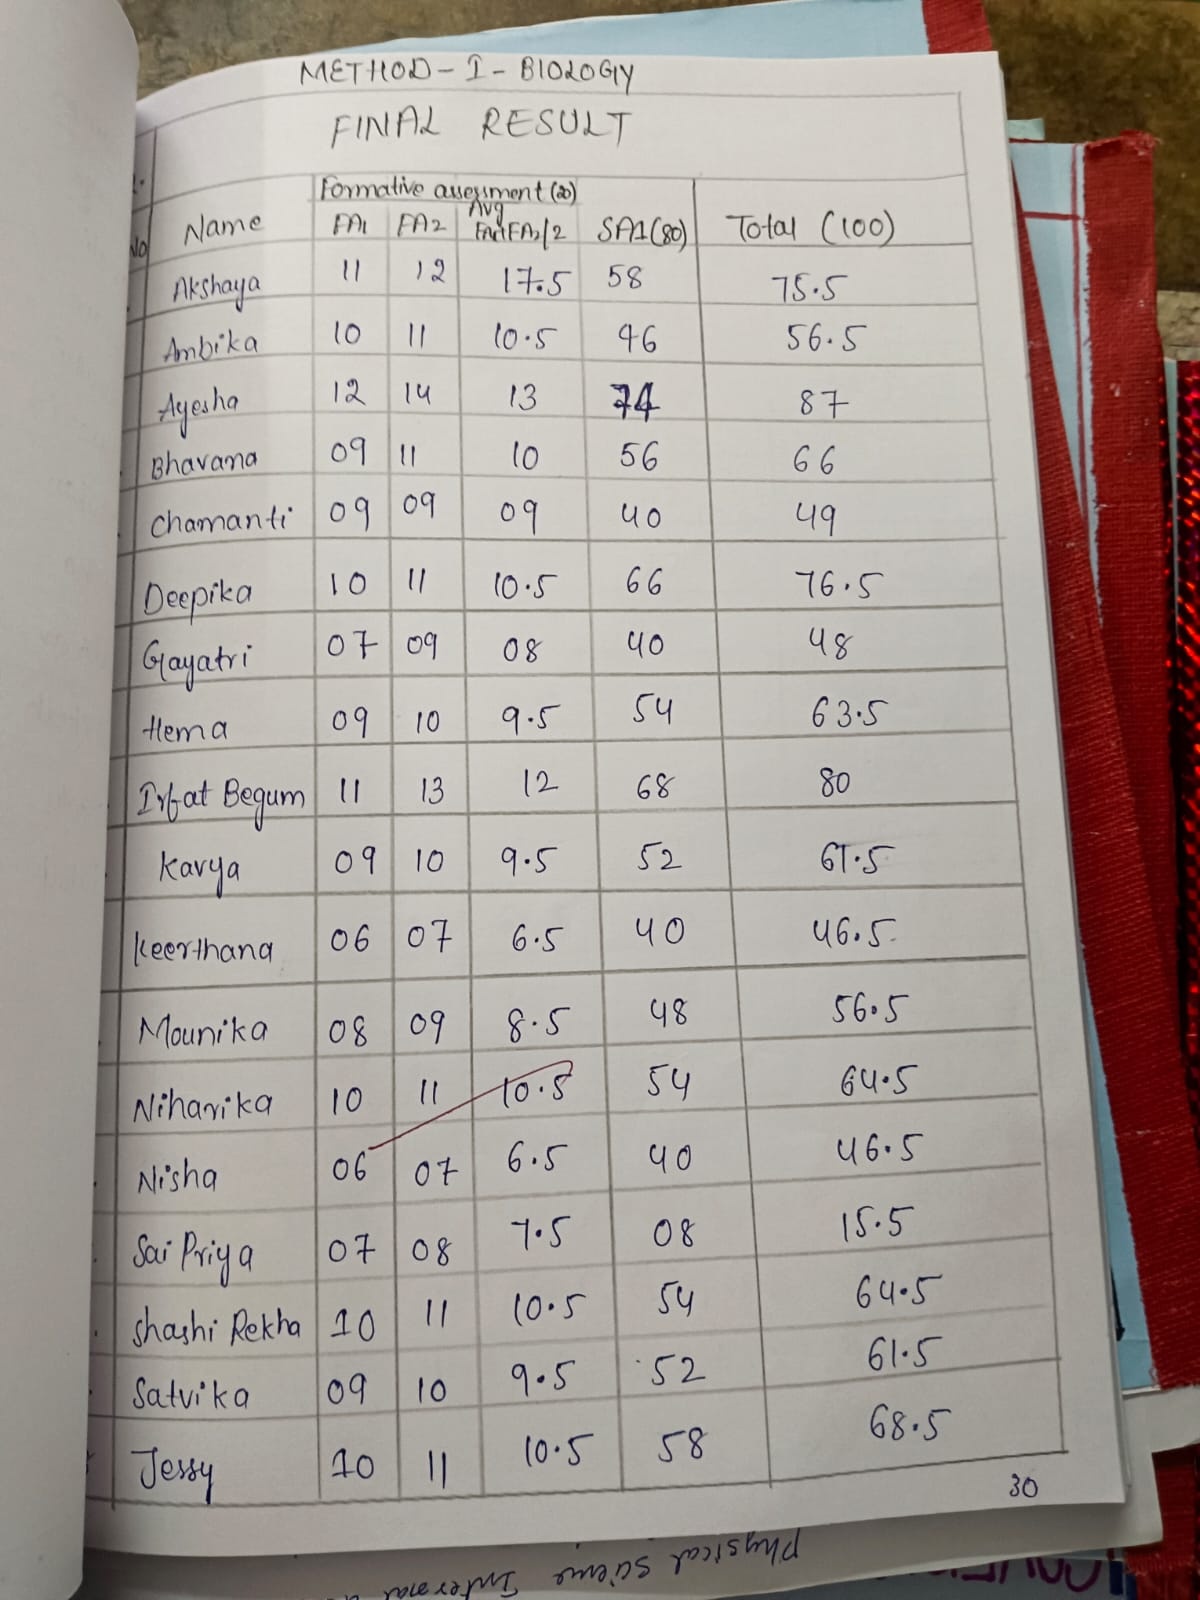 METHOD-I-BIOLOGY
FINAL RESULT
No Name Formative assessment (20) SA1(80) Total (100)
FA1 FA2 Avg FA1+FA2/2
Akshaya 11 12 17.5 58 75.5
Ambika 10 11 10.5 46 56.5
Ayesha 12 14 13 74 87
Bhavana 09 11 10 56 66
Chamanti 09 09 09 40 49
Deepika 10 11 10.5 66 76.5
Gayatri 07 09 08 40 48
Hema 09 10 9.5 54 63.5
Irfat Begum 11 13 12 68 80
Kavya 09 10 9.5 52 61.5
Keerthana 06 07 6.5 40 46.5
Mounika 08 09 8.5 48 56.5
Niharika 10 11 10.5 54 64.5
Nisha 06 07 6.5 40 46.5
Sai Priya 07 08 7.5 08 15.5
Shashi Rekha 10 11 10.5 54 64.5
Satvika 09 10 9.5 52 61.5
Jessy 10 11 10.5 58 68.5
30
Physical Science Internal